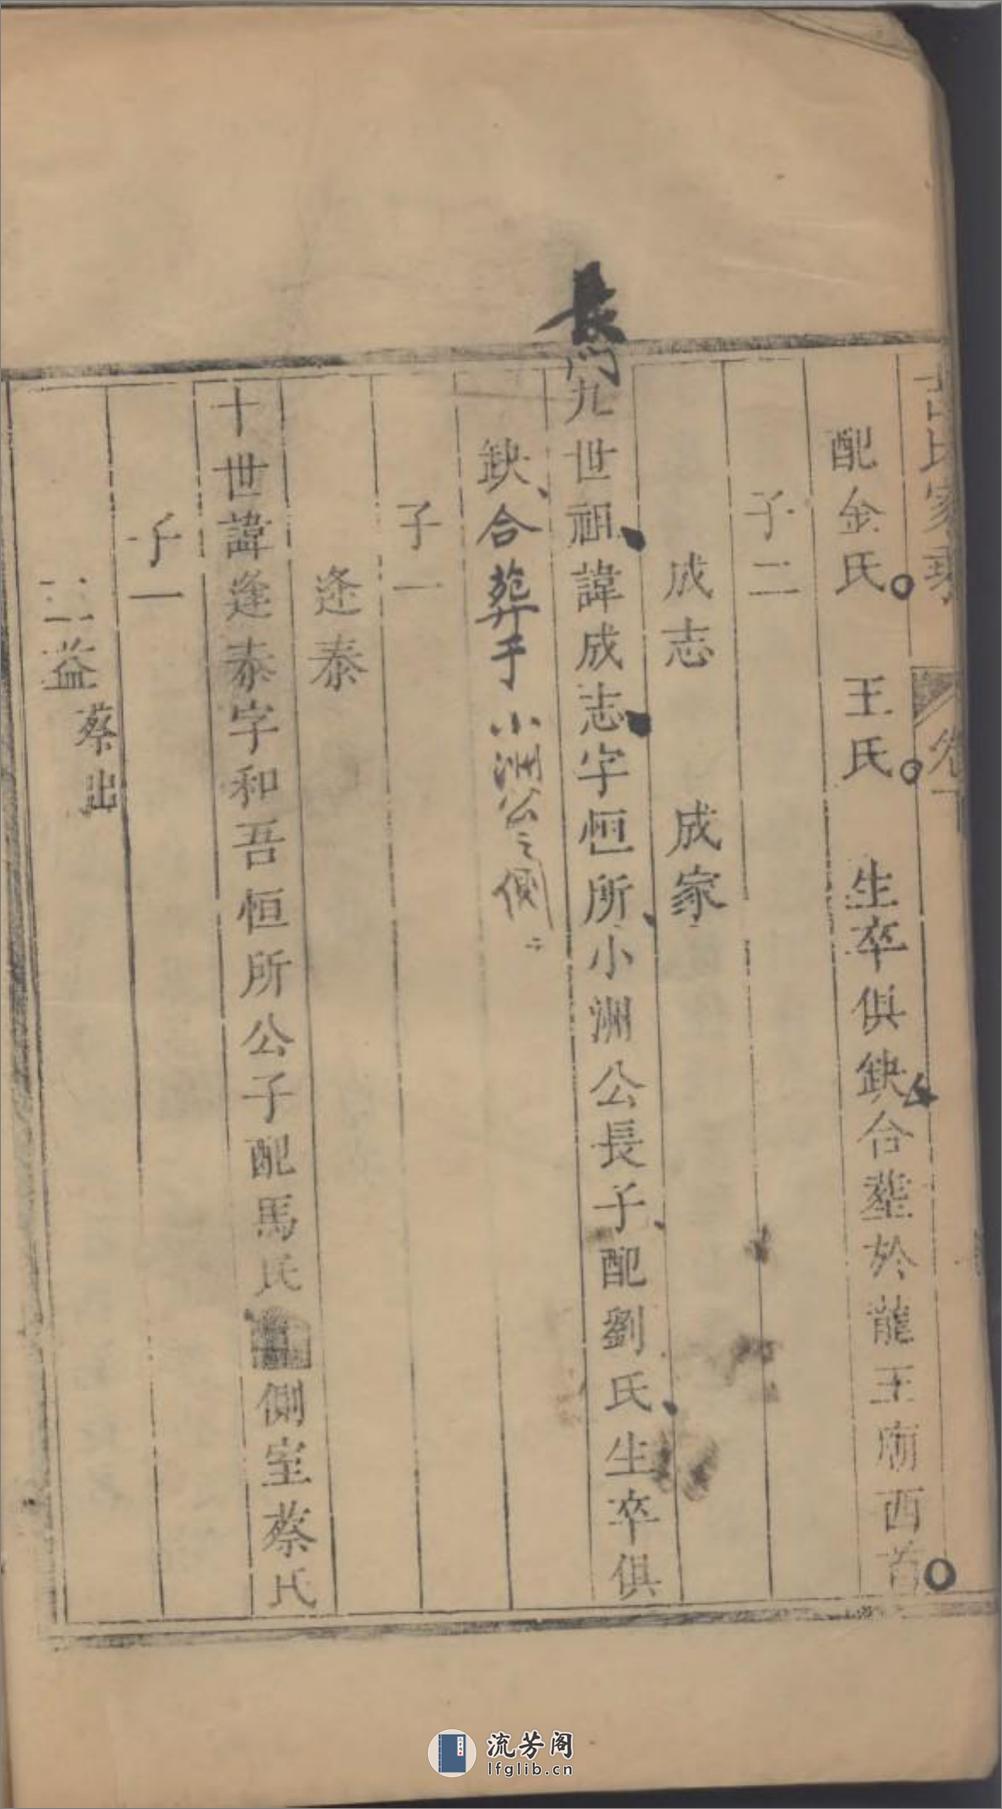 氏家乘 卷下
配金氏 王氏 生卒俱缺合塟於龍王廟西首
子二
成志 成家
長門
九世祖諱成志字恒所小洲公長子配劉氏生卒俱
缺合葬于小洲公之側
子一
逢泰
十世諱逢泰字和吾恒所公子配馬氏側室蔡氏
子一
三益 蔡出
流芳阁
lfglib.cn